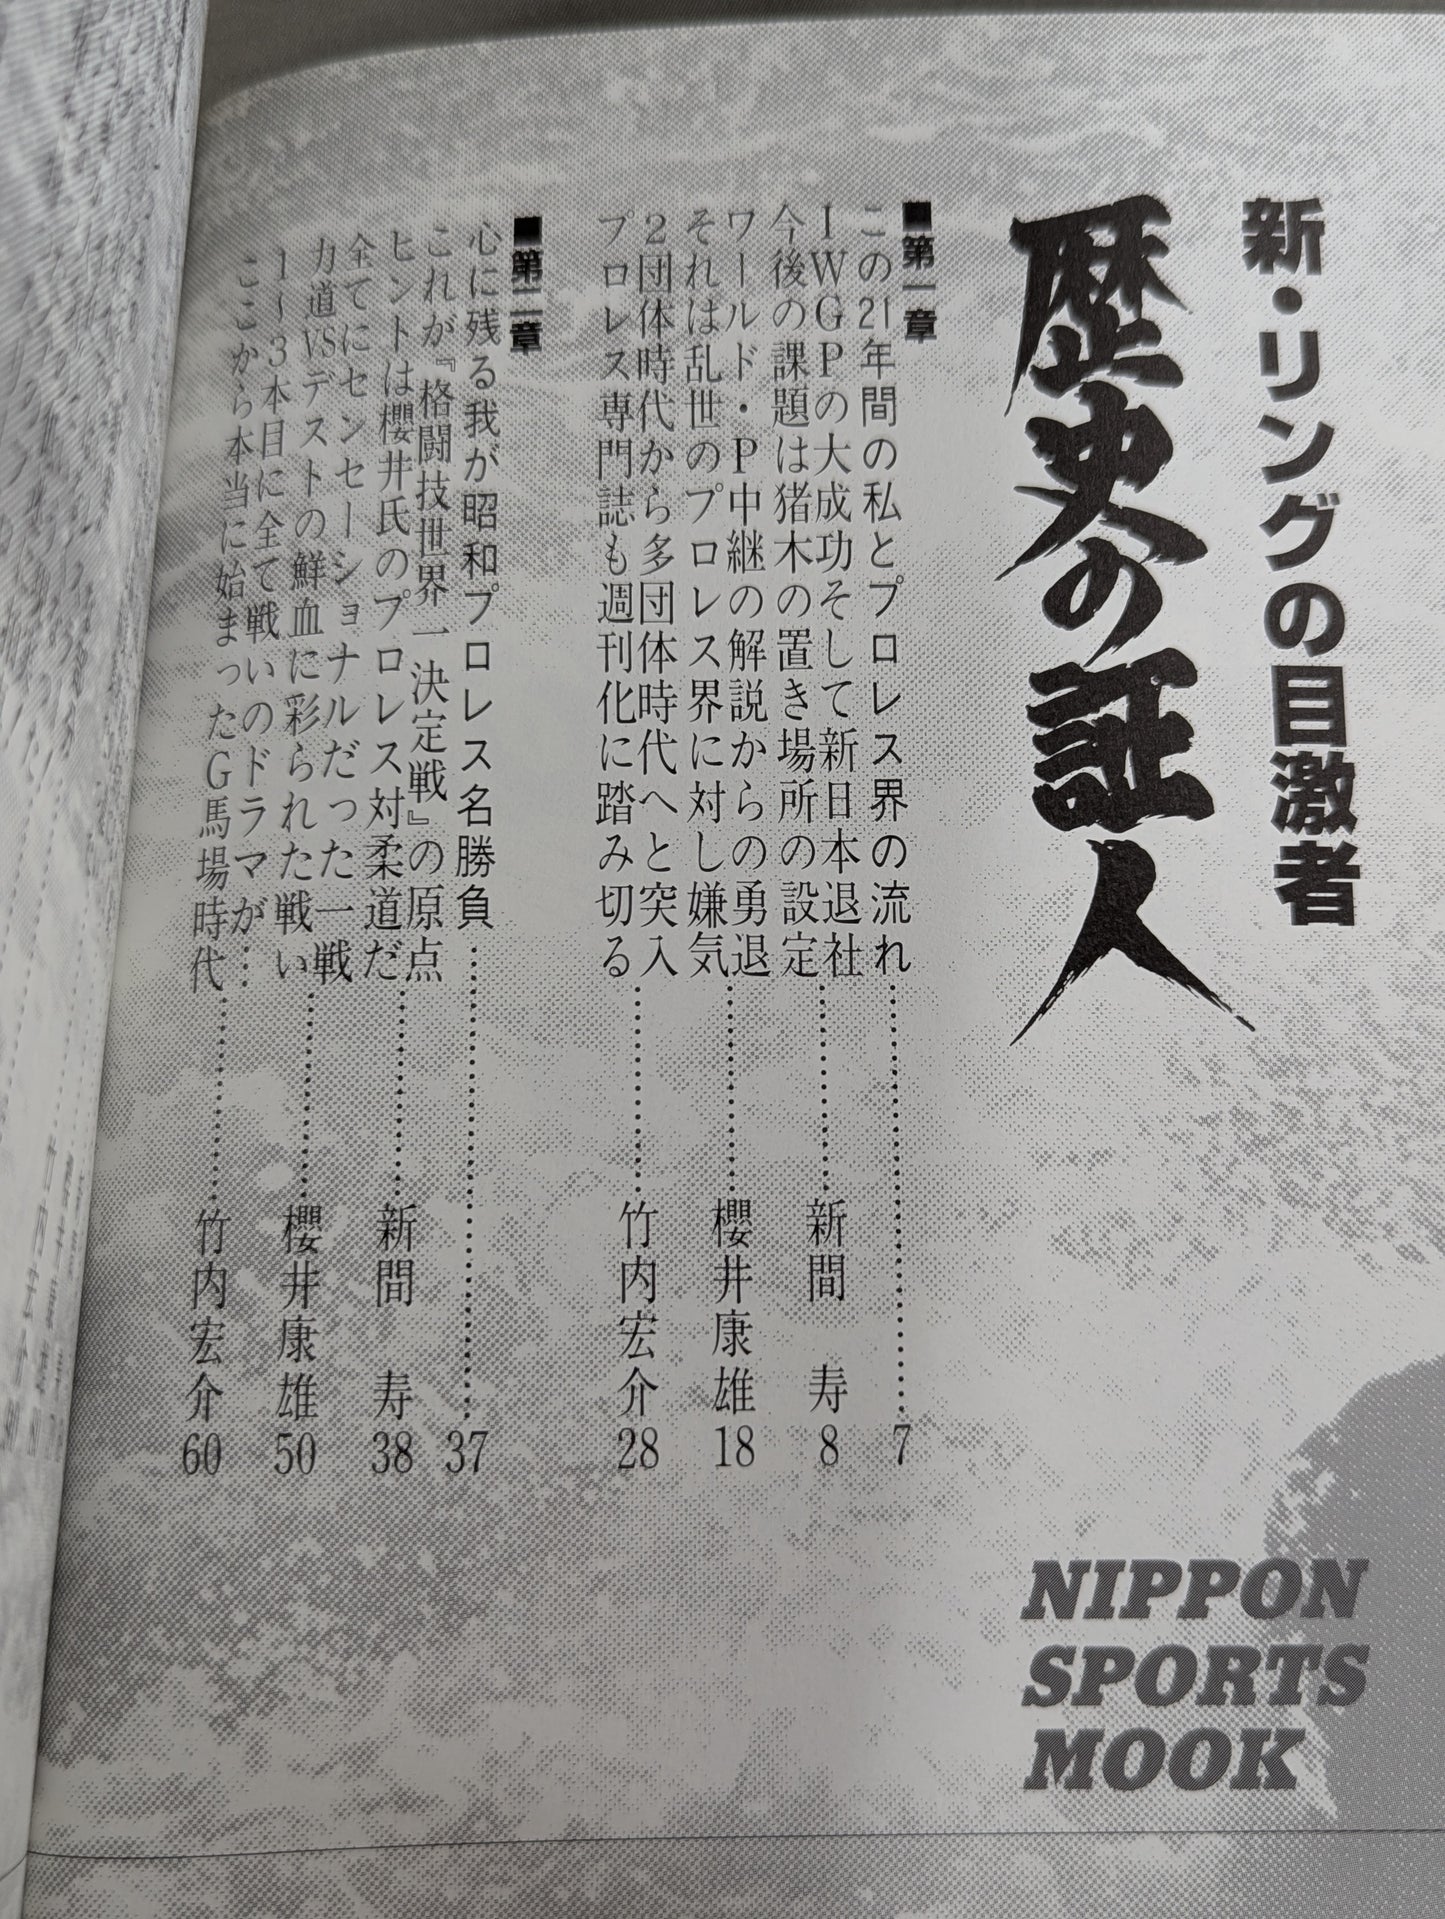 新・リングの目激者
歴史の証人
■第一章
この21年間の私とプロレス界の流れ………………7
IWGPの大成功そして新日本退社
今後の課題は猪木の置き場所の設定………新間 寿 8
ワールド・P中継の解説からの勇退
それは乱世のプロレス界に対し嫌気………櫻井康雄 18
2団体時代から多団体時代へと突入
プロレス専門誌も週刊化に踏み切る………竹内宏介 28
■第二章
心に残る我が昭和プロレス名勝負………………37
これが『格闘技世界一決定戦』の原点
ヒントは櫻井氏のプロレス対柔道だ………新間 寿 38
全てにセンセーショナルだった一戦
力道VSデストの鮮血に彩られた戦い………櫻井康雄 50
1〜3本目に全て戦いのドラマが…
ここから本当に始まったG馬場時代………竹内宏介 60
NIPPON
SPORTS
MOOK